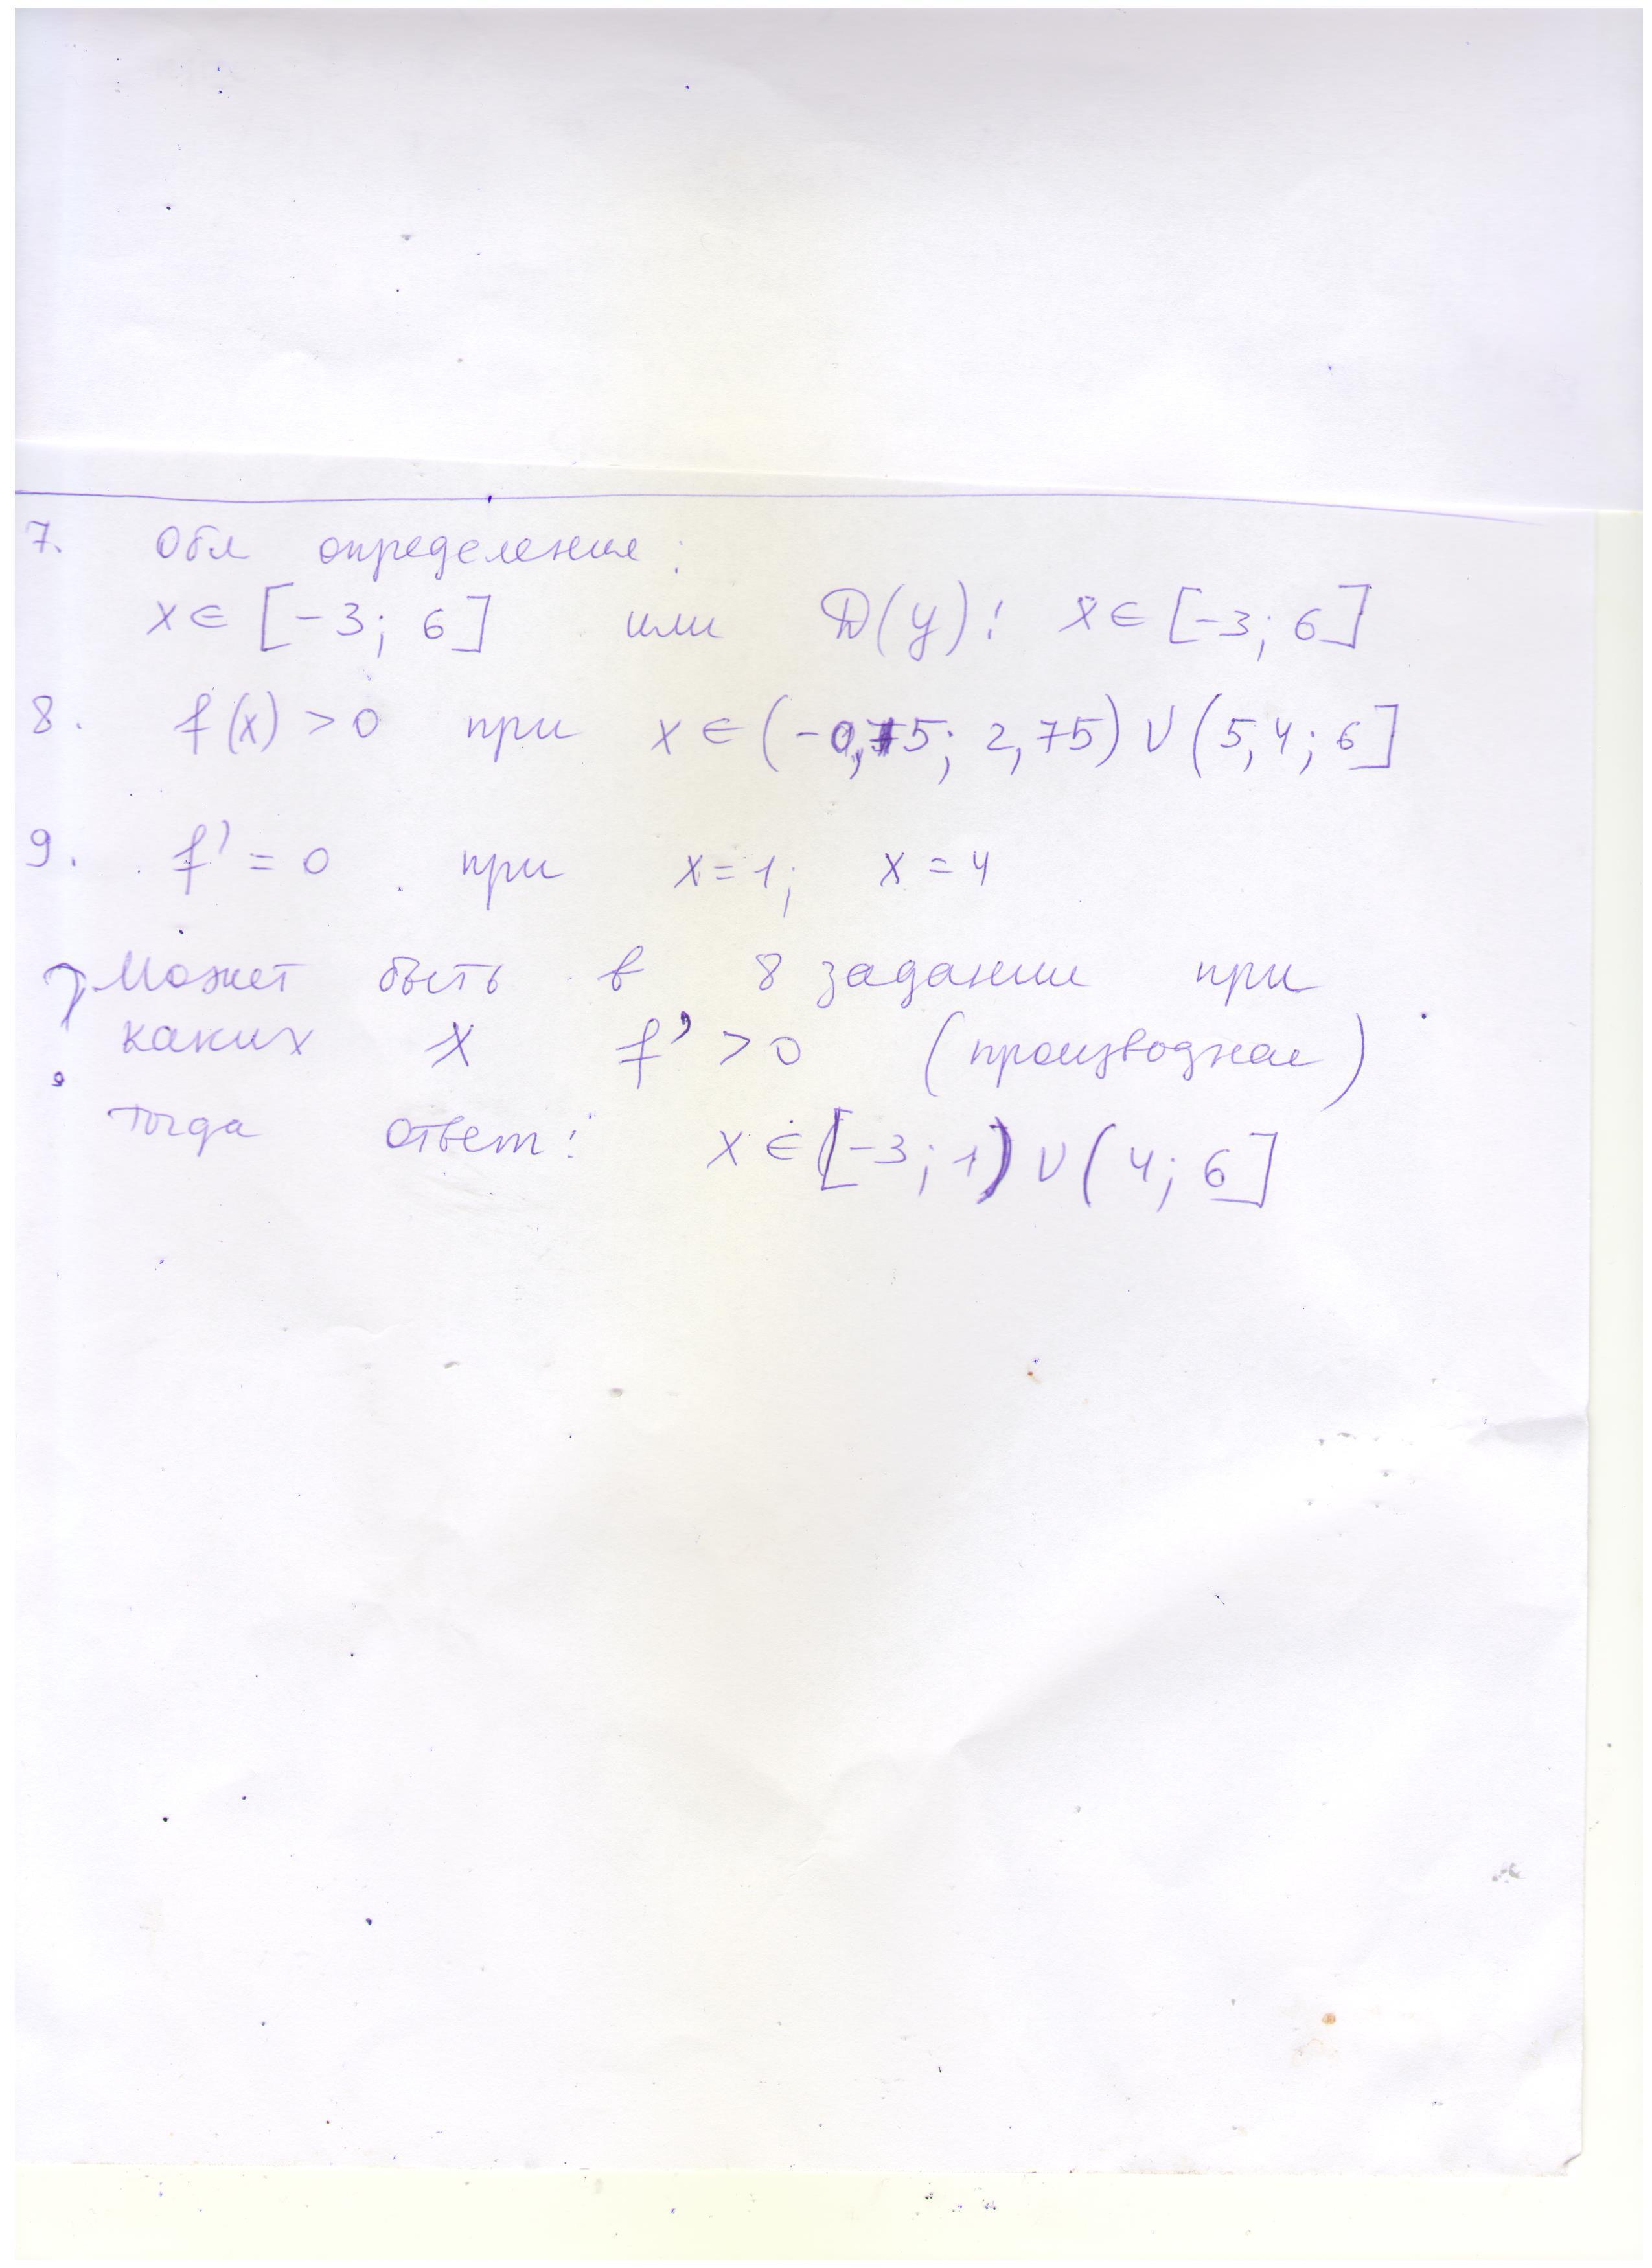 7. Обл определения:
x ∈ [-3; 6] или D(y): x ∈ [-3; 6]
8. f(x) > 0 при x ∈ (-0,75; 2,75) ∪ (5,4; 6]
9. f' = 0 при x = 1; x = 4
? Может быть в 8 задании при
каких x f' > 0 (производная)
тогда ответ: x ∈ [-3; 1) ∪ (4; 6]